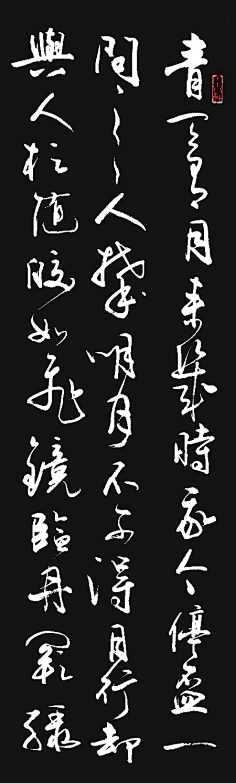 青天有月来幾時我今停盃一
問之人攀明月不可得月行却
與人相随皎如飛鏡臨丹闕緑